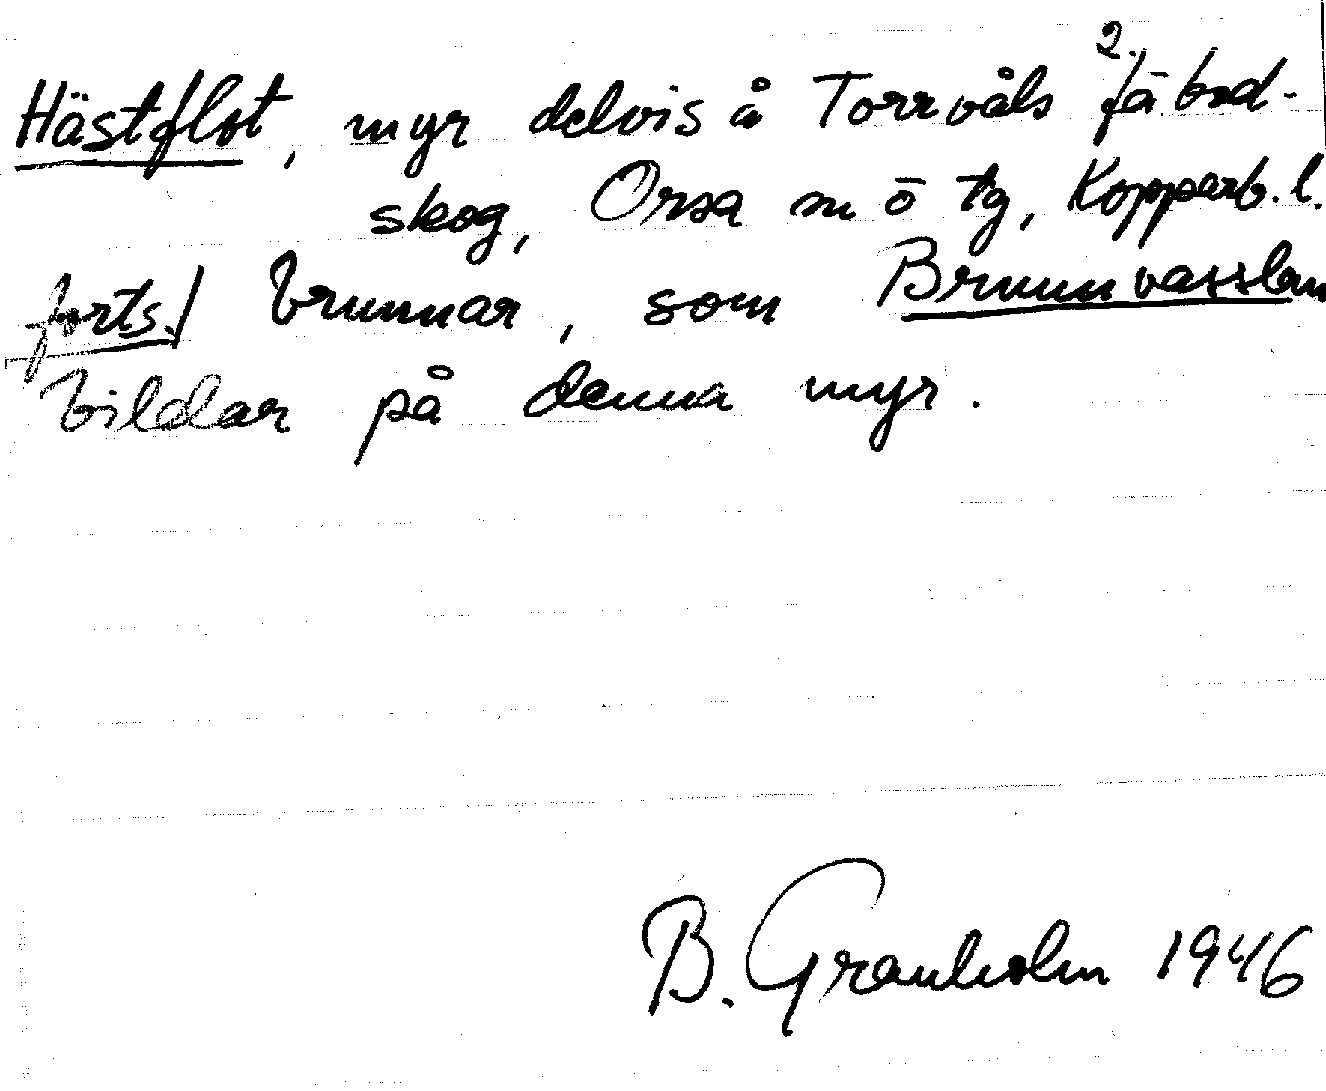 2.
Hästflot, myr delvis å Torrvåls fäbod-
skog, Orsa m ö tg, Kopparb. l.
forts./ brunnar, som Brunnvasslan
bildar på denna myr.
B. Granholm 1946